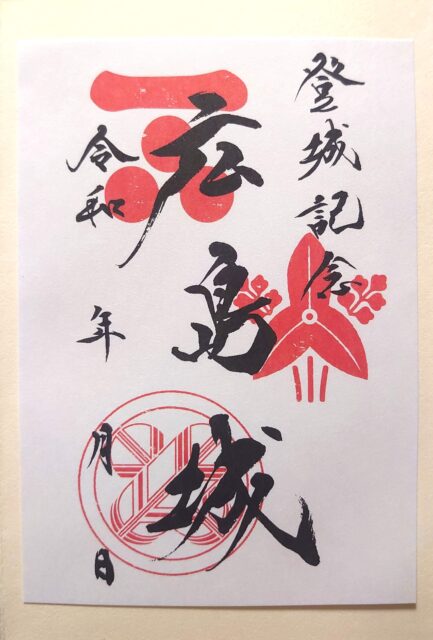 登城記念
広島城
令和
年
月
日